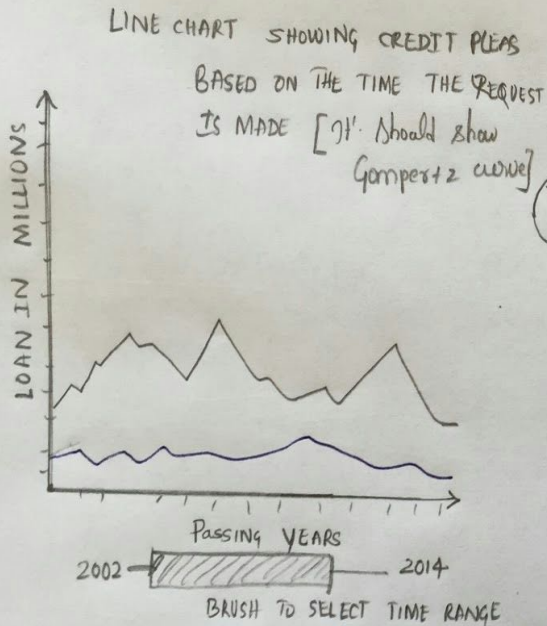 LINE CHART SHOWING CREDIT PLEAS
BASED ON THE TIME THE REQUEST
IS MADE [It should show
Gompertz curve]
LOAN IN MILLIONS
Passing YEARS
2002
2014
BRUSH TO SELECT TIME RANGE